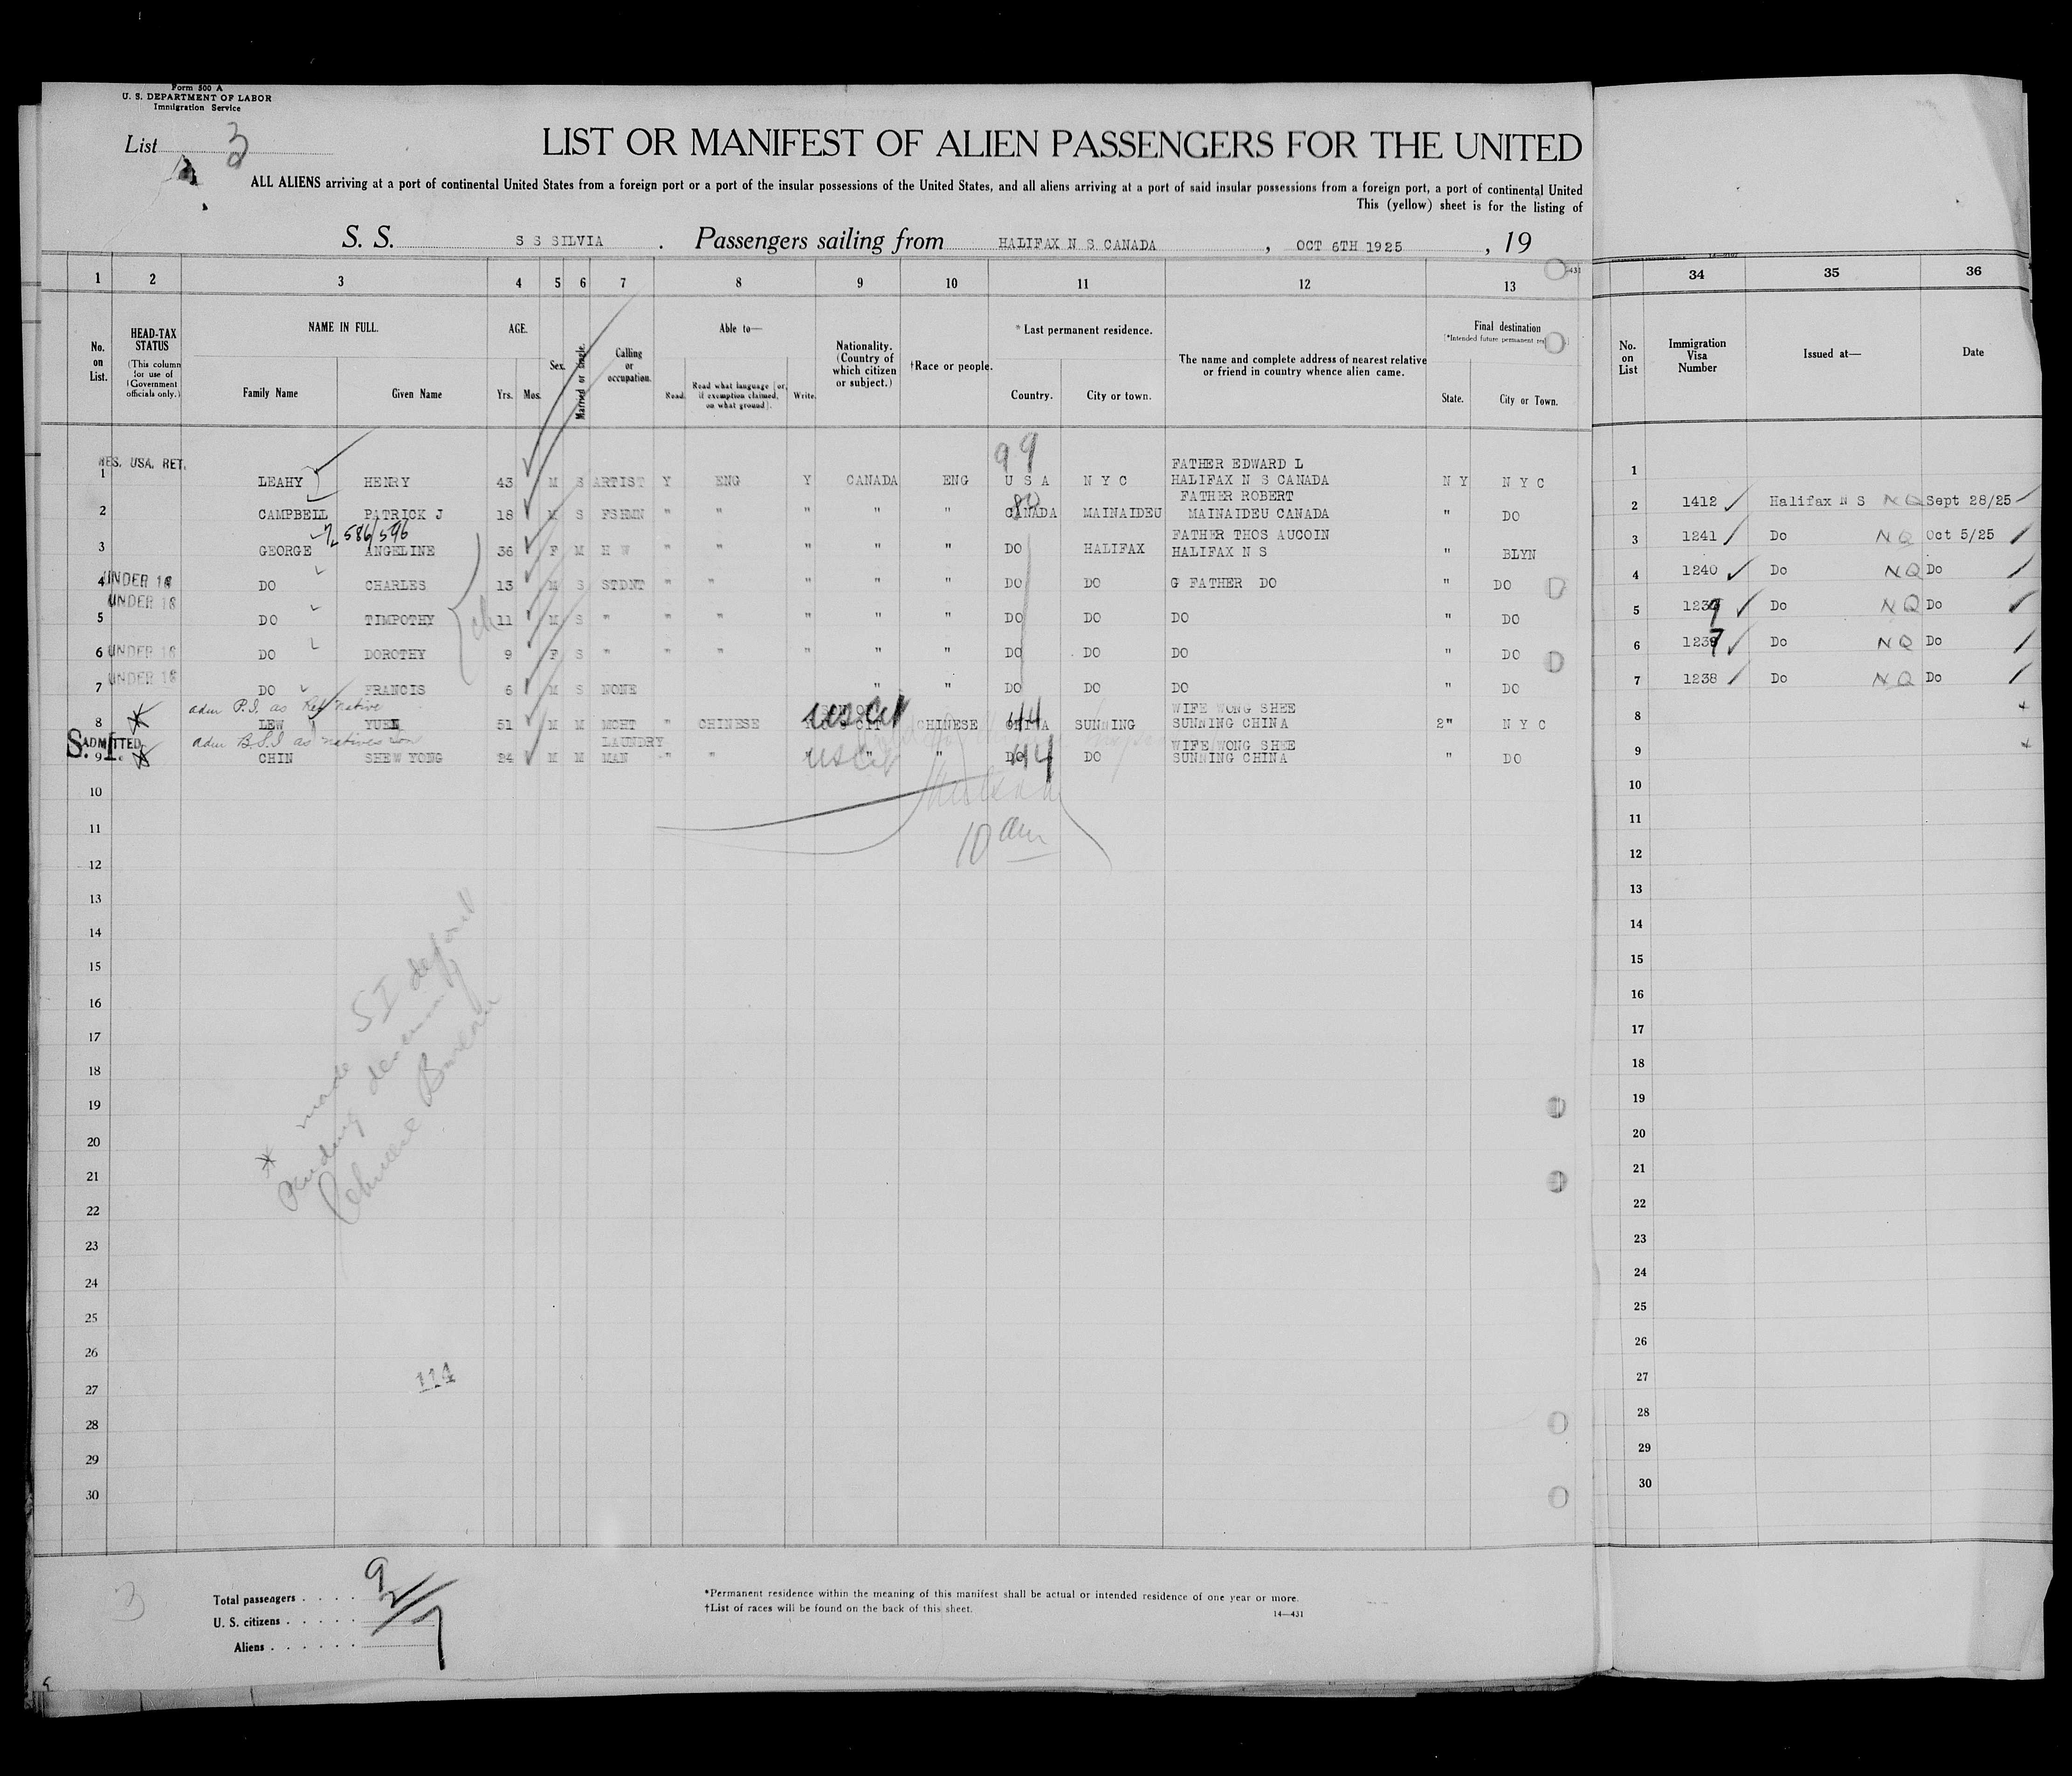 Form 500 A
U. S. DEPARTMENT OF LABOR
Immigration Service
List 3
LIST OR MANIFEST OF ALIEN PASSENGERS FOR THE UNITED
ALL ALIENS arriving at a port of continental United States from a foreign port or a port of the insular possessions of the United States, and all aliens arriving at a port of said insular possessions from a foreign port, a port of continental United
This (yellow) sheet is for the listing of
S. S. S S SILVIA . Passengers sailing from HALIFAX N S CANADA , OCT 6TH 1925 , 19
1 2 3 4 5 6 7 8 9 10 11 12 13 34 35 36
No. on List. HEAD-TAX STATUS (This column for use of Government officials only.) NAME IN FULL. Family Name Given Name AGE. Yrs. Mos. Sex. Married or Single. Calling or occupation. Able to— Read. Read what language [or, if exemption claimed, on what ground]. Write. Nationality. (Country of which citizen or subject.) †Race or people. *Last permanent residence. Country. City or town. The name and complete address of nearest relative or friend in country whence alien came. Final destination State. City or Town. No. on List Immigration Visa Number Issued at— Date
RES. USA. RET. 99 FATHER EDWARD L
1 LEAHY HENRY 43 M S ARTIST Y ENG Y CANADA ENG U S A N Y C HALIFAX N S CANADA N Y N Y C 1
FATHER ROBERT
2 CAMPBELL PATRICK J 18 M S FSHMN " " " " " CANADA MAINAIDEU MAINAIDEU CANADA " DO 2 1412 Halifax N S NQ Sept 28/25
586/596 FATHER THOS AUCOIN
3 GEORGE ANGELINE 36 F M H W " " " " " DO HALIFAX HALIFAX N S " BLYN 3 1241 Do NQ Oct 5/25
4 UNDER 18 DO CHARLES 13 M S STDNT " " " " " DO DO G FATHER DO " DO 4 1240 Do NQ Do
UNDER 18
5 DO TIMPOTHY 11 M S " " " " " " DO DO DO " DO 5 1239 Do NQ Do
6 UNDER 18 DO DOROTHY 9 F S " " " " " " DO DO DO " DO 6 1237 Do NQ Do
UNDER 18
7 DO FRANCIS 6 M S NONE " " DO DO DO " DO 7 1238 Do NQ Do
adm P.I. as Ret native WIFE WONG SHEE
8 LEW YUEN 51 M M MCHT " CHINESE " US Cit CHINESE CHINA 44 SUNNING SUNNING CHINA 2" N Y C 8
S.I. ADMITTED adm B.S.I as natives son LAUNDRY WIFE WONG SHEE
9 CHIN SHEW YONG 24 M M MAN " " US Cit " " DO 44 DO SUNNING CHINA " DO 9
10 10
10 am
11 11
12 12
13 13
14 14
15 15
16 16
17 17
18 18
19 19
20 20
21 21
22 22
23 23
24 24
25 25
26 26
27 27
28 28
29 29
30 30
* made SI deport
pending decision of
Chinese Bureau
114
3
Total passengers . . . . 9
U. S. citizens . . . . . 2
Aliens . . . . . . 7
*Permanent residence within the meaning of this manifest shall be actual or intended residence of one year or more.
†List of races will be found on the back of this sheet.
14—431